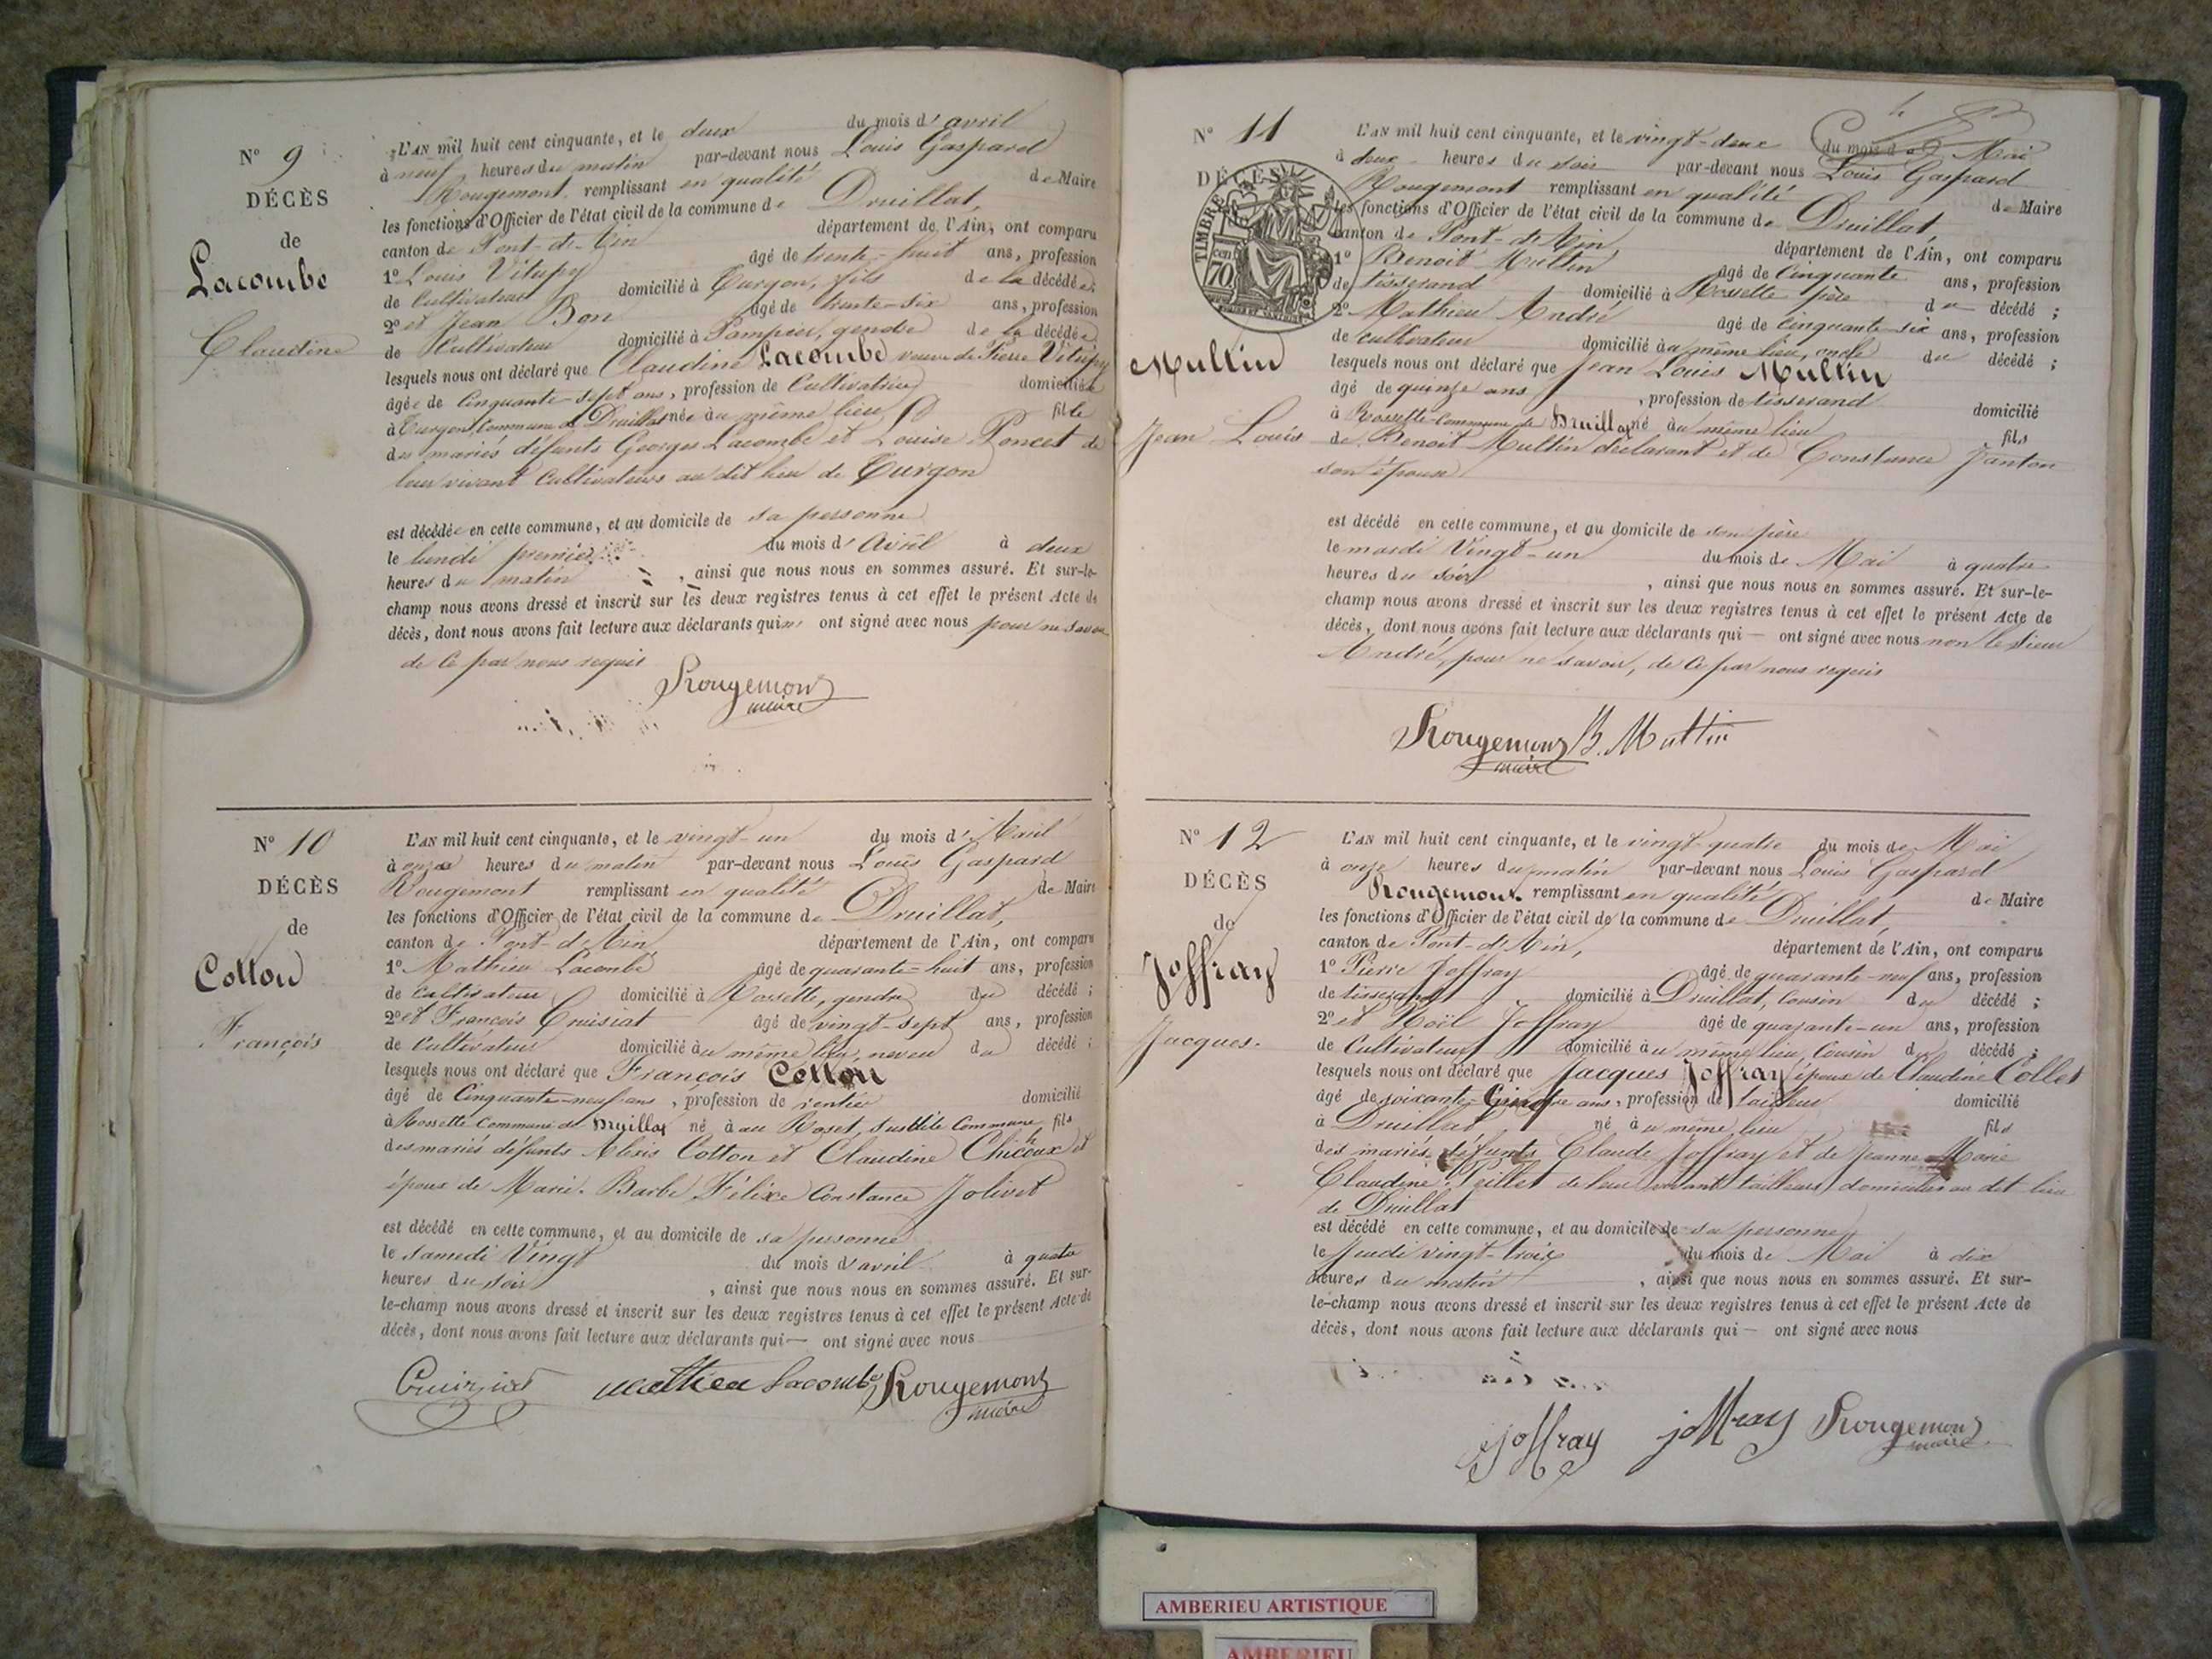 N° 9
DÉCÈS
de
Lacombe
Claudine
L'AN mil huit cent cinquante, et le deux du mois d'avril
à neuf heures du matin par-devant nous Louis Gaspard
Rougemont remplissant en qualité de Maire
les fonctions d'Officier de l'état civil de la commune de Druillat,
canton de Pont-d'Ain département de l'Ain, ont comparu
1° Louis Vitupy âgé de trente-huit ans, profession
de Cultivateur domicilié à Turgon, fils de la décédée;
2° et Jean Bon âgé de trente-six ans, profession
de Cultivateur domicilié à Pampier, gendre de la décédée
lesquels nous ont déclaré que Claudine Lacombe veuve de Pierre Vitupy
âgée de Cinquante-sept ans, profession de Cultivatrice domiciliée
à Turgon, Commune de Druillat née au même lieu fille
des mariés défunts Georges Lacombe et Louise Poncet de
leur vivant Cultivateurs au dit lieu de Turgon
est décédée en cette commune, et au domicile de sa personne
le lundi premier du mois d'Avril à deux
heures du matin, ainsi que nous nous en sommes assuré. Et sur-le-
champ nous avons dressé et inscrit sur les deux registres tenus à cet effet le présent Acte de
décès, dont nous avons fait lecture aux déclarants qui ont signé avec nous pour ne savoir
de ce par nous requis
Rougemont
maire
N° 10
DÉCÈS
de
Cotton
François
L'AN mil huit cent cinquante, et le vingt-un du mois d'Avril
à onze heures du matin par-devant nous Louis Gaspard
Rougemont remplissant en qualité de Maire
les fonctions d'Officier de l'état civil de la commune de Druillat,
canton de Pont-d'Ain département de l'Ain, ont comparu
1° Mathieu Lacombe âgé de quarante-huit ans, profession
de Cultivateur domicilié à Rossette, gendre du décédé;
2° et François Cruisiat âgé de vingt-sept ans, profession
de Cultivateur domicilié au même lieu, neveu du décédé;
lesquels nous ont déclaré que François Cotton
âgé de Cinquante-neuf ans, profession de rentier domicilié
à Rossette Commune de Druillat né à au Roset, susdite Commune fils
des mariés défunts Alexis Cotton et Claudine Chicoux et
époux de Marie-Barbe Félixe Constance Jolivet
est décédé en cette commune, et au domicile de sa personne
le samedi Vingt du mois d'avril à quatre
heures du soir, ainsi que nous nous en sommes assuré. Et sur-
le-champ nous avons dressé et inscrit sur les deux registres tenus à cet effet le présent Acte de
décès, dont nous avons fait lecture aux déclarants qui — ont signé avec nous
Cruiziat mathieu Lacombe Rougemont
maire
N° 11
DÉCÈS
TIMBRE
70 cen
Multin
Jean Louis
L'AN mil huit cent cinquante, et le vingt-deux du mois de Mai
à deux heures du soir par-devant nous Louis Gaspard
Rougemont remplissant en qualité de Maire
les fonctions d'Officier de l'état civil de la commune de Druillat,
canton de Pont-d'Ain département de l'Ain, ont comparu
1° Benoit Multin âgé de Cinquante ans, profession
de tisserand domicilié à Rossette père du décédé;
2° Mathieu André âgé de cinquante-six ans, profession
de cultivateur domicilié au même lieu, oncle du décédé;
lesquels nous ont déclaré que Jean Louis Multin
âgé de quinze ans, profession de tisserand domicilié
à Rossette Commune de Druillat né au même lieu fils
de Benoit Multin déclarant et de Constance Janton
son épouse
est décédé en cette commune, et au domicile de son père
le mardi Vingt-un du mois de Mai à quatre
heures du soir, ainsi que nous nous en sommes assuré. Et sur-le-
champ nous avons dressé et inscrit sur les deux registres tenus à cet effet le présent Acte de
décès, dont nous avons fait lecture aux déclarants qui — ont signé avec nous non le sieur
André, pour ne savoir, de ce par nous requis
Rougemont B. Multin
maire
N° 12
DÉCÈS
de
Joffray
Jacques.
L'AN mil huit cent cinquante, et le vingt-quatre du mois de Mai
à onze heures du matin par-devant nous Louis Gaspard
Rougemont remplissant en qualité de Maire
les fonctions d'Officier de l'état civil de la commune de Druillat
canton de Pont-d'Ain, département de l'Ain, ont comparu
1° Pierre Joffray âgé de quarante-neuf ans, profession
de tisserand domicilié à Druillat, Cousin du décédé;
2° et Noël Joffray âgé de quarante-un ans, profession
de Cultivateur domicilié au même lieu, Cousin du décédé;
lesquels nous ont déclaré que Jacques Joffray époux de Claudine Collet
âgé de soixante- ans, profession de tailleur domicilié
à Druillat né au même lieu fils
des mariés défunts Claude Joffray et de Jeanne Marie
Claudine Peillet de leur vivant tailleurs domiciliés au dit lieu
de Druillat
est décédé en cette commune, et au domicile de sa personne
le Jeudi vingt-trois du mois de Mai à dix
heures du matin, ainsi que nous nous en sommes assuré. Et sur-
le-champ nous avons dressé et inscrit sur les deux registres tenus à cet effet le présent Acte de
décès, dont nous avons fait lecture aux déclarants qui — ont signé avec nous
Joffray joffray Rougemont
maire
AMBERIEU ARTISTIQUE
AMBERIEU